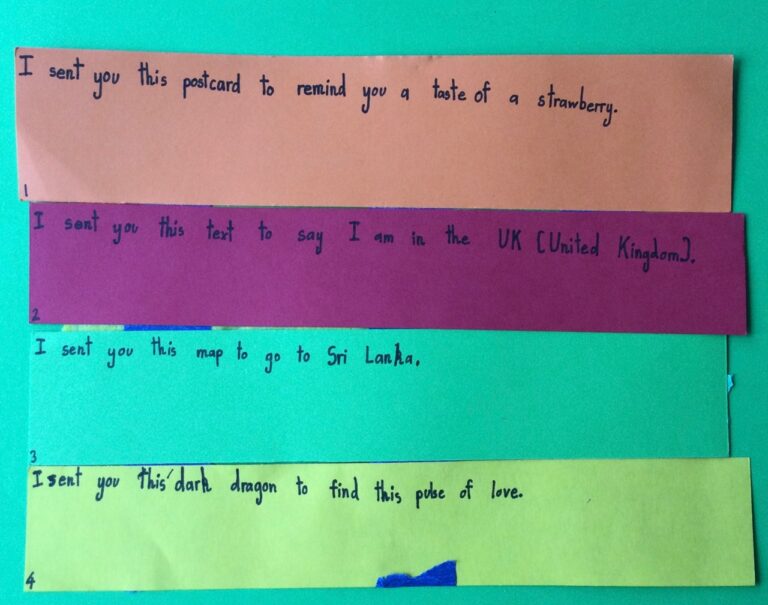 I sent you this postcard to remind you a taste of a strawberry.
1
I sent you this text to say I am in the UK (United Kingdom).
2
I sent you this map to go to Sri Lanka.
3
I sent you this dark dragon to find this pulse of love.
4